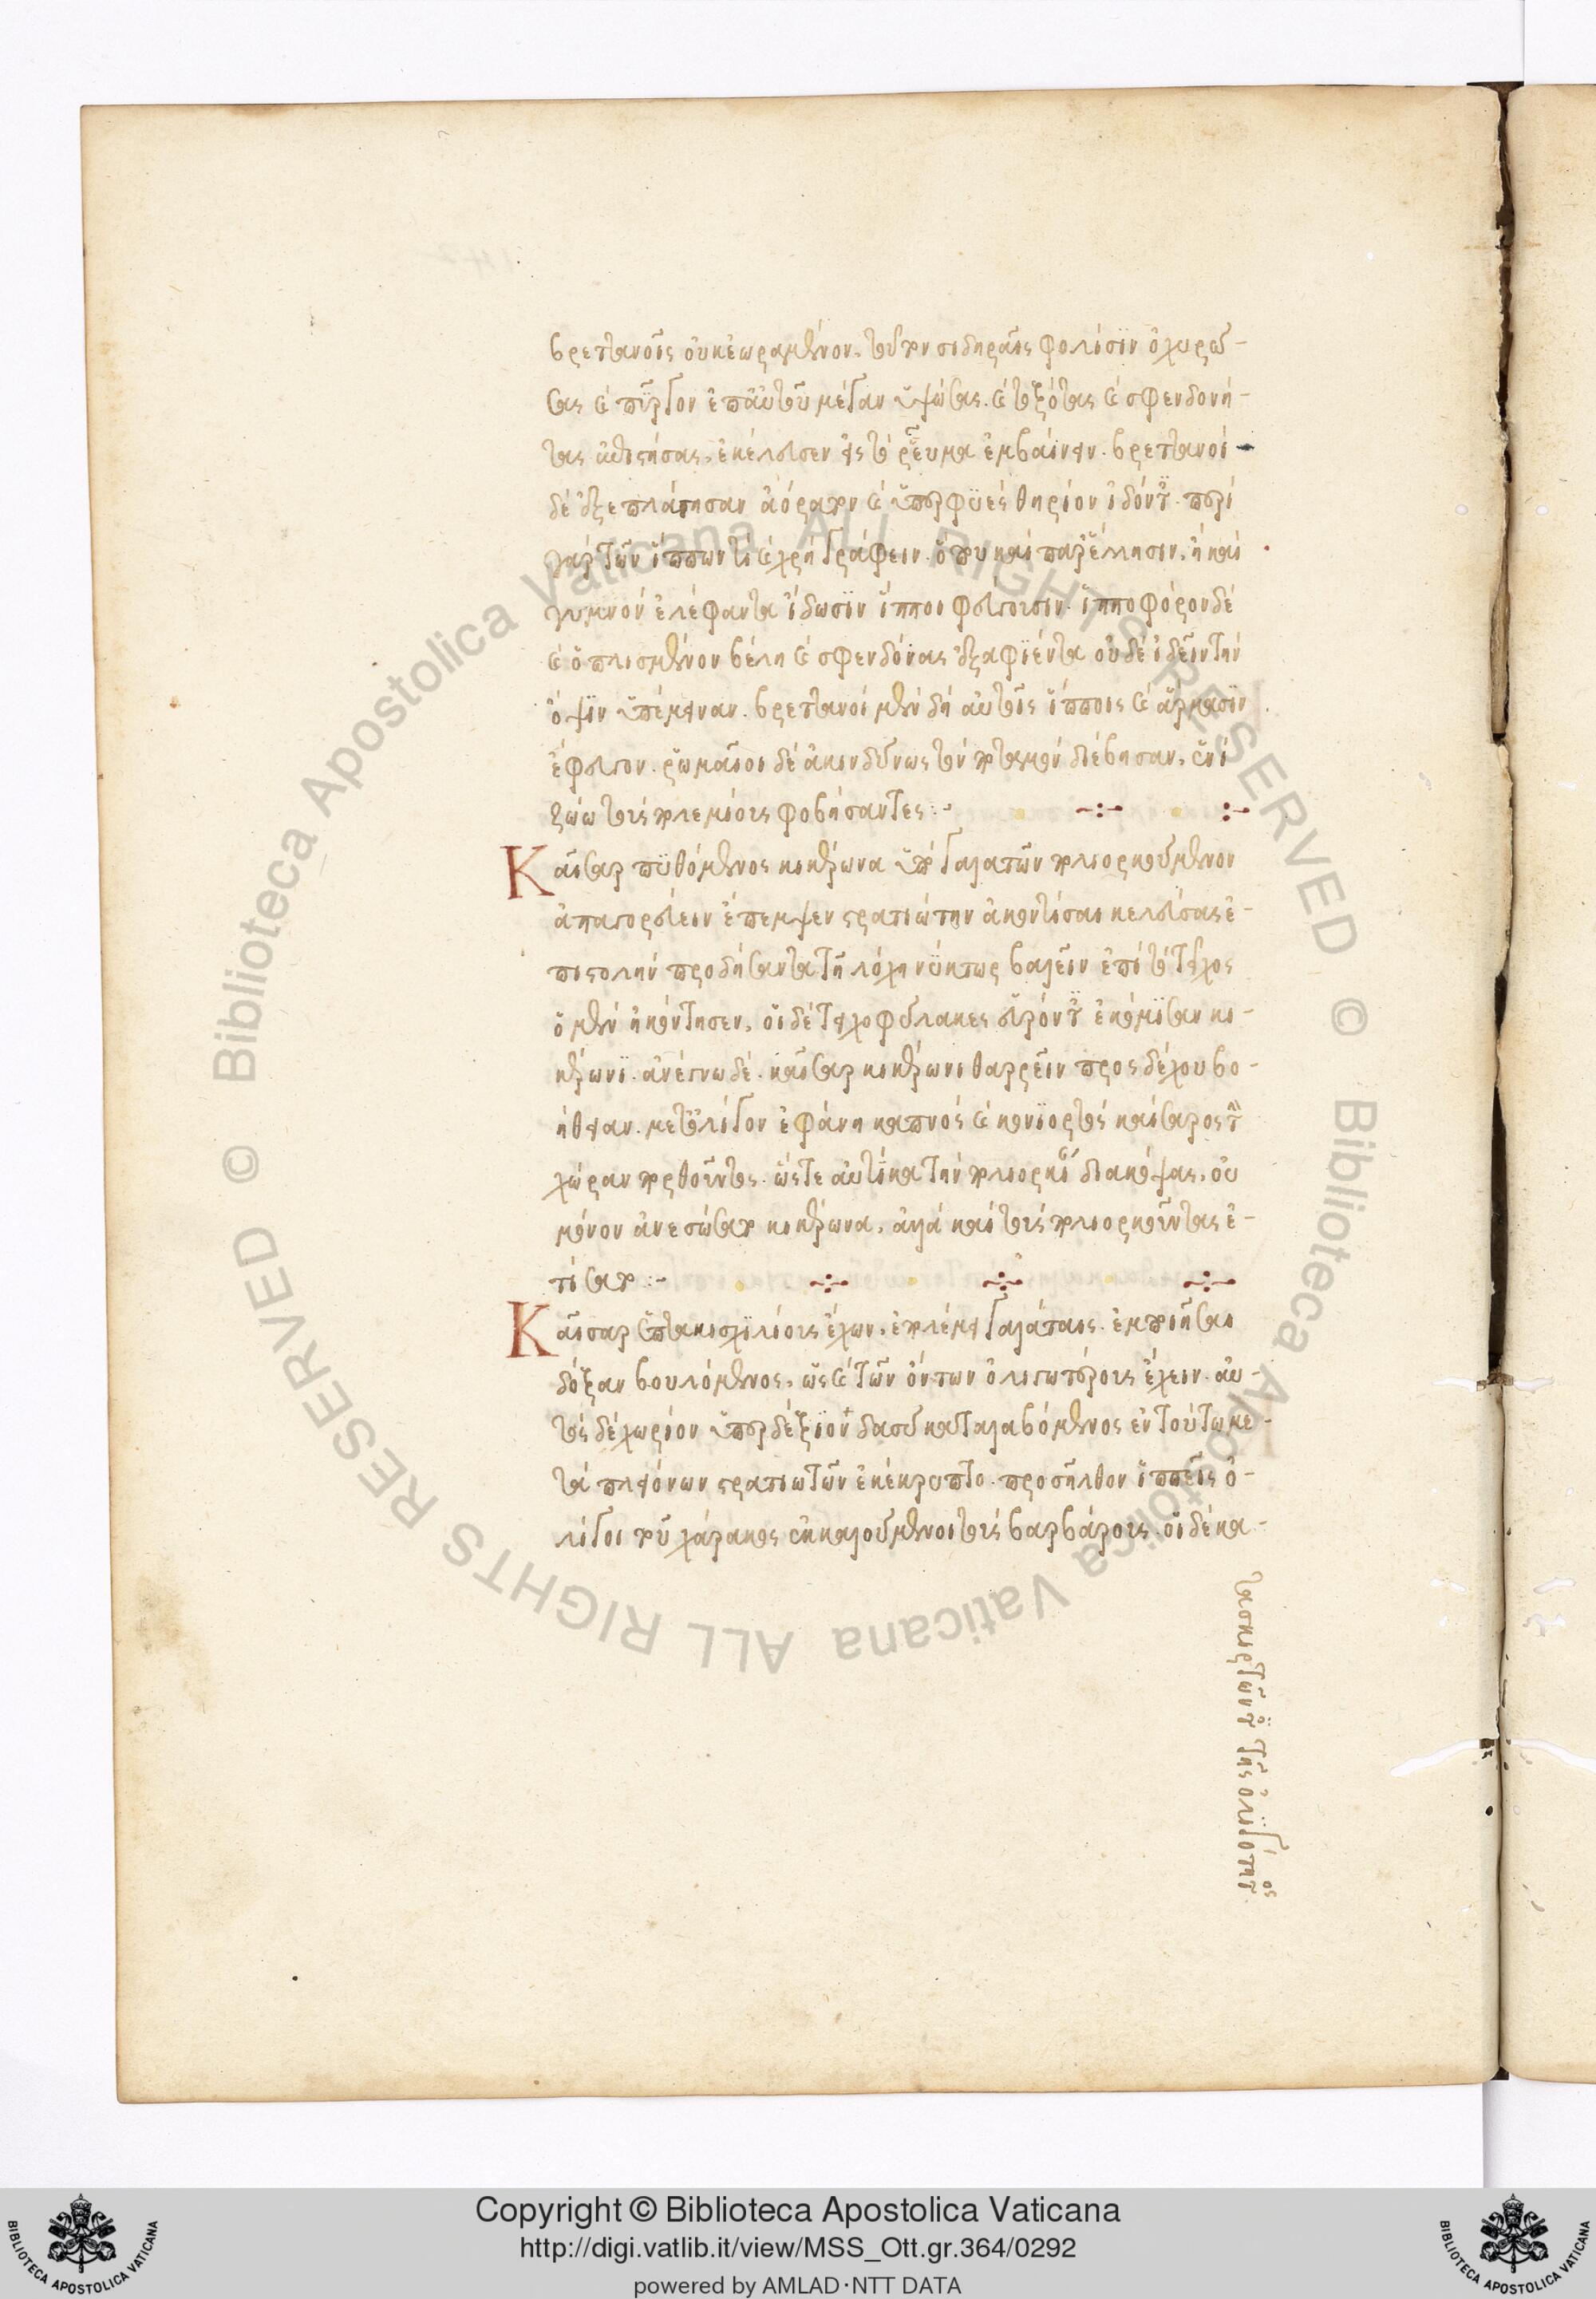 βρεττανοῖς οὐχ ἑωραμένον. τοῦτον σιδηραῖς φολίσιν ὀχυρώ-
σας καὶ πύργον ἐπ' αὐτοῦ μέγαν ὑψώσας. καὶ τοξότας καὶ σφενδονή-
τας ἐπιστήσας, ἐκέλευσεν εἰς τὸ ῥεῦμα ἐμβαίνειν. βρεττανοὶ
δὲ ἐξεπλάγησαν ἀόρατον καὶ ὑπερφυὲς θηρίον ἰδόντες. περὶ
γὰρ τῶν ἵππων τί καὶ χρὴ γράφειν. ὅπου καὶ παρ' ἕλλησιν, ἢν καὶ
γυμνὸν ἐλέφαντα ἴδωσιν ἵπποι φεύγουσιν. ἱπποφόρον δὲ
καὶ ὡπλισμένον βέλη καὶ σφενδόνας ἐξαφιέντα οὐδὲ ἰδεῖν τὴν
ὄψιν ὑπέμειναν. βρεττανοὶ μὲν δὴ αὐτοῖς ἵπποις καὶ ἅρμασιν
ἔφευγον. ῥωμαῖοι δὲ ἀκινδύνως τὸν ποταμὸν διέβησαν, ἑνὶ
ζώω τοὺς πολεμίους φοβήσαντες :-
Καῖσαρ πυθόμενος κικέρωνα ὑπὸ γαλατῶν πολιορκούμενον
ἀπαγορεύειν ἔπεμψεν στρατιώτην ἀκοντίσαι κελεύσας ἐ-
πιστολὴν προσδήσαντα τῇ λόγχῃ νύκτωρ βαλεῖν ἐπὶ τὸ τεῖχος
ὁ μὲν ἠκόντησεν, οἱ δὲ τειχοφύλακες εὑρόντες ἐκόμισαν κι-
κέρωνι. ἀνέγνω δὲ. καῖσαρ κικέρωνι θαρρεῖν προσδέχου βο-
ήθειαν. μετ' ὀλίγον ἐφάνη καπνὸς καὶ κονιορτὸς καίσαρος τὴν
χώραν πορθοῦντος. ὥστε αὐτίκα τὴν πολιορκίαν διακόψας, οὐ
μόνον ἀνεσώσατο κικέρωνα, ἀλλὰ καὶ τοὺς πολιορκοῦντας ἐ-
τίσατο :-
Καῖσαρ ἑπτακισχιλίους ἔχων, ἐπολέμει γαλάταις. ἐμποιῆσαι
δόξαν βουλόμενος, ὡς καὶ τῶν ὄντων ὀλιγωτέρους ἔχειν. αὐ-
τὸς δὲ χωρίον ὑπερδέξιον δασὺ καταλαβόμενος ἐν τούτω με-
τὰ πλειόνων στρατιωτῶν ἐκέκρυπτο. προσῆλθον ἱππεῖς ὀ-
λίγοι τοῦ χάρακος ἐκκαλούμενοι τοὺς βαρβάρους. οἱ δὲ κα-
τασκιρτῶντες τῆς ὀλιγότητος
Copyright © Biblioteca Apostolica Vaticana
http://digi.vatlib.it/view/MSS_Ott.gr.364/0292
powered by AMLAD·NTT DATA